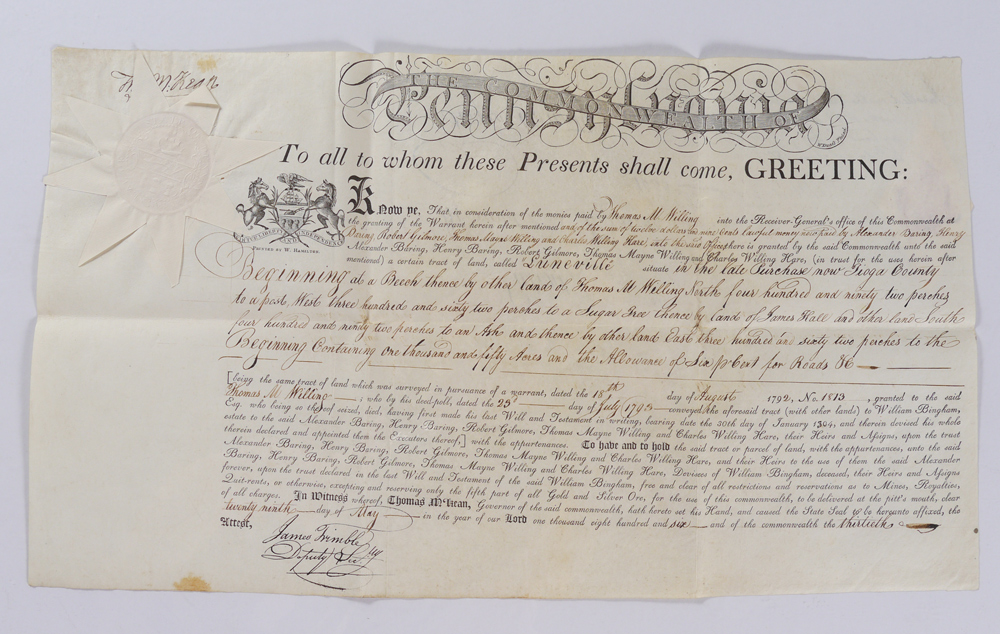 M.Kean
THE COMMONWEALTH OF
Pennsylvania
To all to whom these Presents shall come, GREETING:
PRINTED BY W. HAMILTON.
Know ye, That in consideration of the monies paid by Thomas M. Willing into the Receiver-General's office of this Commonwealth at
the granting of the Warrant herein after mentioned and of the sum of twelve dollars nine cents lawful money now paid by Alexander Baring, Henry
Baring, Robert Gilmore, Thomas Mayne Willing and Charles Willing Hare, into the said Office there is granted by the said Commonwealth unto the said
Alexander Baring, Henry Baring, Robert Gilmore, Thomas Mayne Willing and Charles Willing Hare, (in trust for the uses herein after
mentioned) a certain tract of land, called Luneville situate in the late Purchase now Tioga County
Beginning at a Beech thence by other land of Thomas M Willing North four hundred and ninety two perches
to a post, West three hundred and sixty two perches to a Sugar Tree thence by lands of James Hall and other land South
four hundred and ninety two perches to an Ash and thence by other land East three hundred and sixty two perches to the
Beginning Containing one thousand and fifty Acres and the Allowance of Six p Cent for Roads &c
[being the same tract of land which was surveyed in pursuance of a warrant, dated the 18th day of August 1792, No. 1813, granted to the said
Thomas M Willing, who by his deed-poll, dated the 23d day of July 1793 conveyed the aforesaid tract (with other lands) to William Bingham,
Esq. who being so thereof seized, died, having first made his last Will and Testament in writing, bearing date the 30th day of January 1804, and therein devised his whole
estate to the said Alexander Baring, Henry Baring, Robert Gilmore, Thomas Mayne Willing and Charles Willing Hare, their Heirs and Assigns, upon the trust
therein declared and appointed them the Executors thereof,] with the appurtenances. To have and to hold the said tract or parcel of land, with the appurtenances, unto the said
Alexander Baring, Henry Baring, Robert Gilmore, Thomas Mayne Willing and Charles Willing Hare, and their Heirs to the use of them the said Alexander
Baring, Henry Baring, Robert Gilmore, Thomas Mayne Willing and Charles Willing Hare, Devisees of William Bingham, deceased, their Heirs and Assigns
forever, upon the trust declared in the last Will and Testament of the said William Bingham, free and clear of all restrictions and reservations as to Mines, Royalties,
Quit-rents, or otherwise, excepting and reserving only the fifth part of all Gold and Silver Ore, for the use of this commonwealth, to be delivered at the pitt's mouth, clear
of all charges. In Witness whereof, Thomas M'Kean, Governor of the said commonwealth, hath hereto set his Hand, and caused the State Seal to be hereunto affixed, the
twenty ninth day of May in the year of our Lord one thousand eight hundred and six and of the commonwealth the thirtieth
Attest,
James Trimble
Deputy Secy